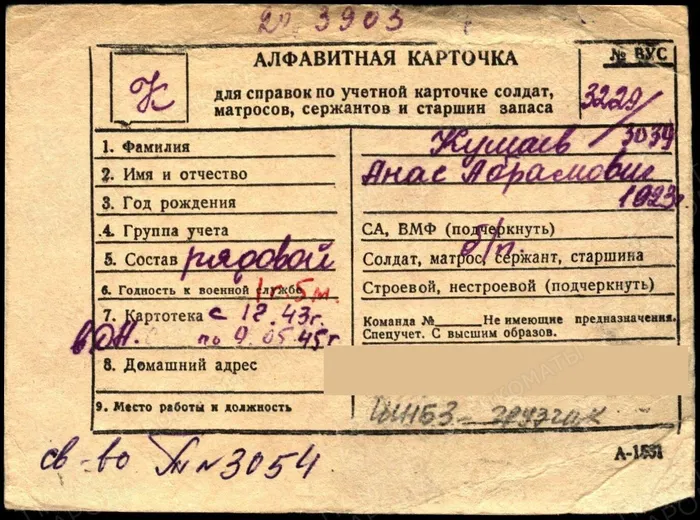 3903
АЛФАВИТНАЯ КАРТОЧКА
№ ВУС
К
для справок по учетной карточке солдат,
матросов, сержантов и старшин запаса
3229/
3039
1. Фамилия
Кушаев
2. Имя и отчество
Анас Абрамович
3. Год рождения
1923г
4. Группа учета
СА, ВМФ (подчеркнуть)
б/п.
5. Состав рядовой
Солдат, матрос, сержант, старшина
6. Годность к военной службе
1г. 5м.
Строевой, нестроевой (подчеркнуть)
7. Картотека с 12.43г.
вОН. по 9.05.45г
Команда № Не имеющие предназначения.
Спецучет. С высшим образов.
8. Домашний адрес
9. Место работы и должность
грузчик
св-во № 3054
А-1531